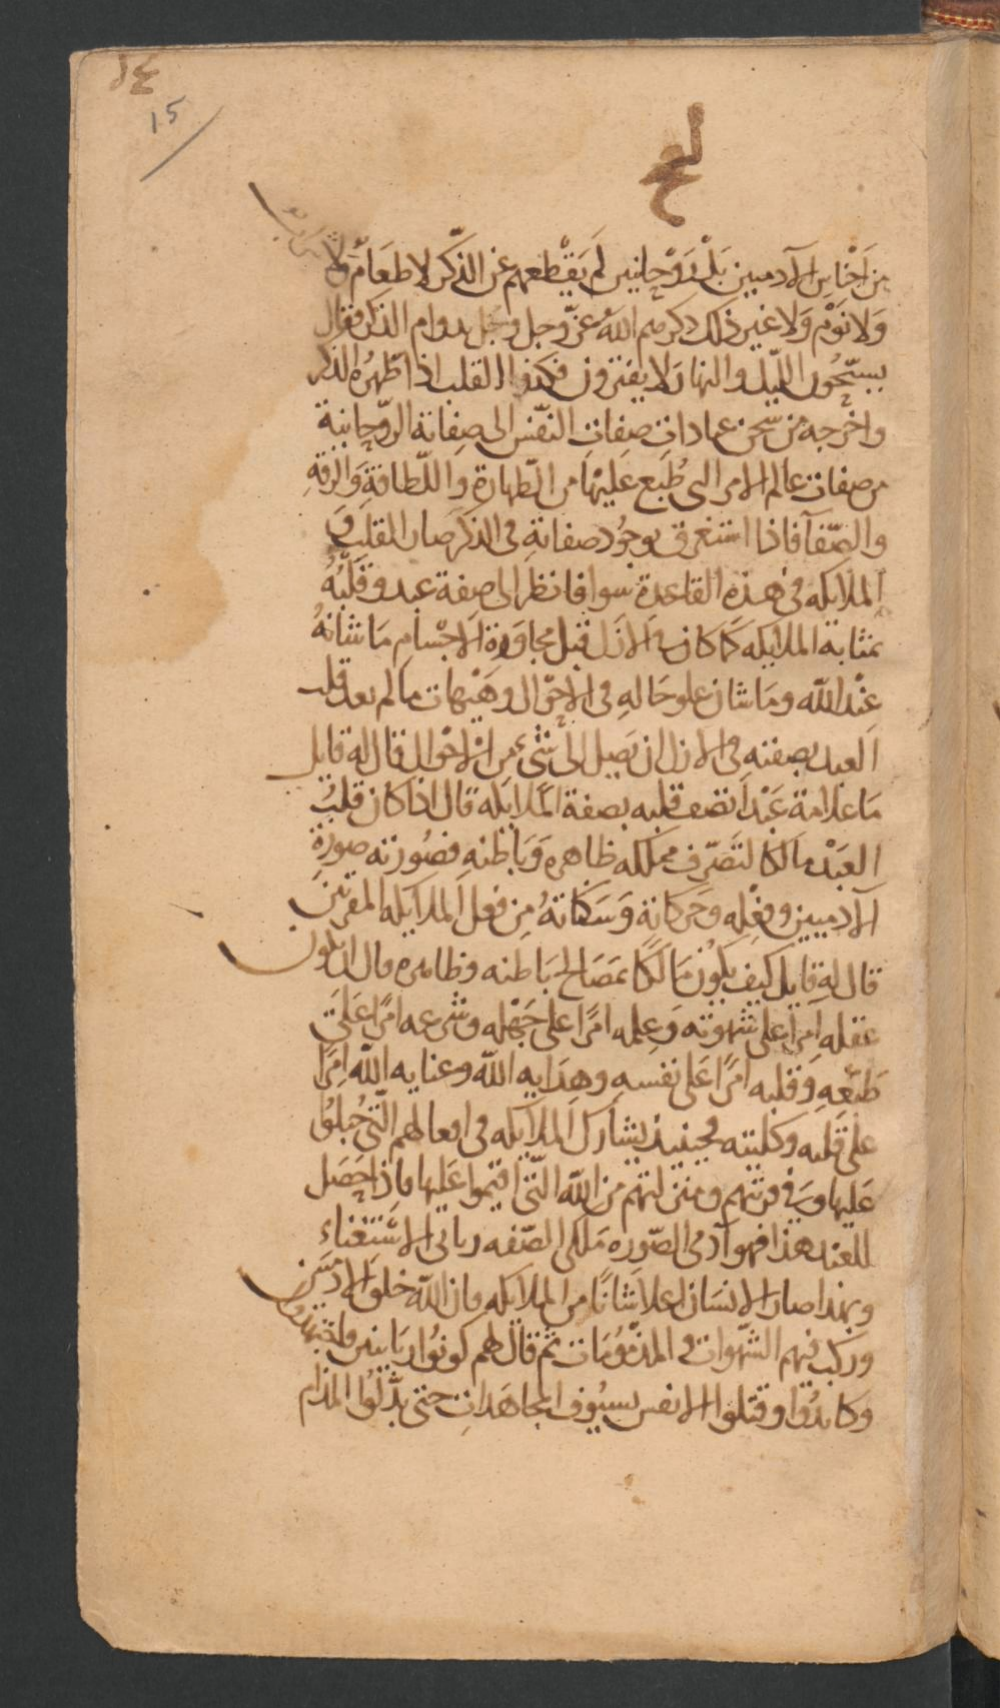 ١٤
15
من اخناس الآدميين بل روحانيين لم يقطعهم عن الذكر لا طعام ولا شراب
ولا نوم ولا غير ذلك ذكرهم الله عز وجل بدوام الذكر فقال
يسبحون الليل والنهار لا يفترون فكذا القلب اذا طهره الذكر
واخرجه من سجن عادات صفات النفس الى صفاته الروحانية
من صفات عالم الامر التى طبع عليها من الطهارة واللطافة والرقة
والصفآ فاذا استغرق بوجود صفاته فى الذكر صار القلب و
الملايكة فى هذه القاعدة سوا فانظر الى صفة عبد وقلبه
بمثابة الملايكه كما كان فى الازل قبل مجاورة الاجسام ما شانه
عند الله وما شان علو حاله فى الاحوال وهيهات ما لم يعد قلب
العبد بصفته فى الازل ان يصل الى شىء من الاحوال قال له قايل
ما علامة عبد اتصف قلبه بصفة الملايكه قال اذا كان قلب
العبد مالكا لتصرف مملكه ظاهره وباطنه فصورته صورة
الآدميين وفعله وحركاته وسكناته من فعل الملايكه المقربين
قال له قايل كيف يكون مالكا بمصالح باطنه وظاهره قال ان يكون
عقله امرا على شهوته وعلمه امرا على جهله وشرعه امرا على
طبعه وقلبه امرا على نفسه وهدايه الله وعنايه الله امرا
على قلبه وكليته فحينيذ يشارك الملايكه فى افعالهم التى جبلوا
عليها وفى قربتهم ومنزلتهم من الله التى اقيموا عليها فاذا حصل
للعبد هذا فهو آدمى الصوره ملكى الصفه ربانى الاستغناء
وبهذا صار الانسان اعلا شانا من الملايكه فان الله خلق الادميين
وركب فيهم الشهوات فى المذمومات ثم قال لهم كونوا ربانيين فاجتهدوا
وكابدوا وقتلوا الانفس بسيوف المجاهدات حتى بدلوا المذام